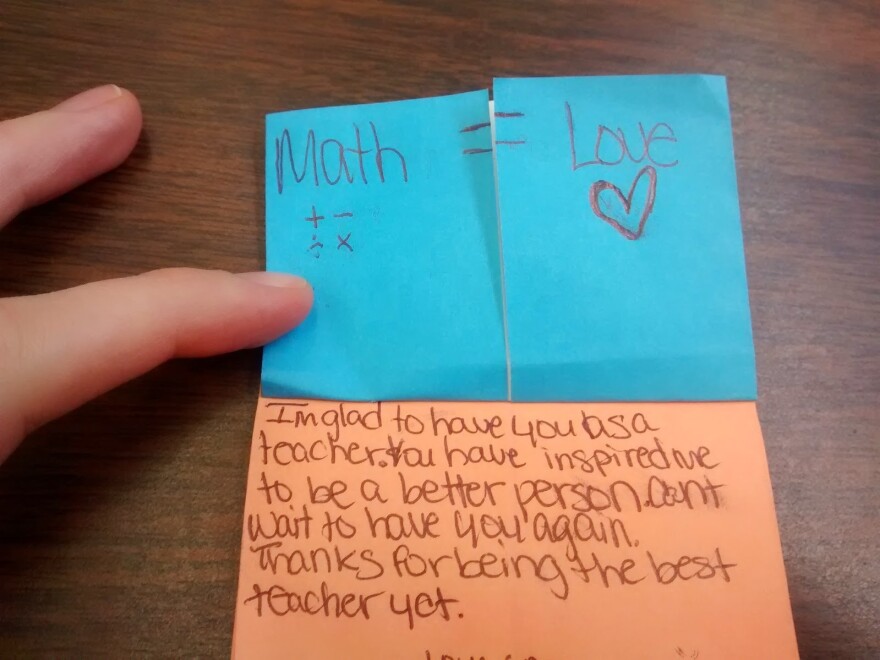 Math = Love
+ -
÷ x
I'm glad to have you as a
teacher. You have inspired me
to be a better person. Can't
wait to have you again.
Thanks for being the best
teacher yet.